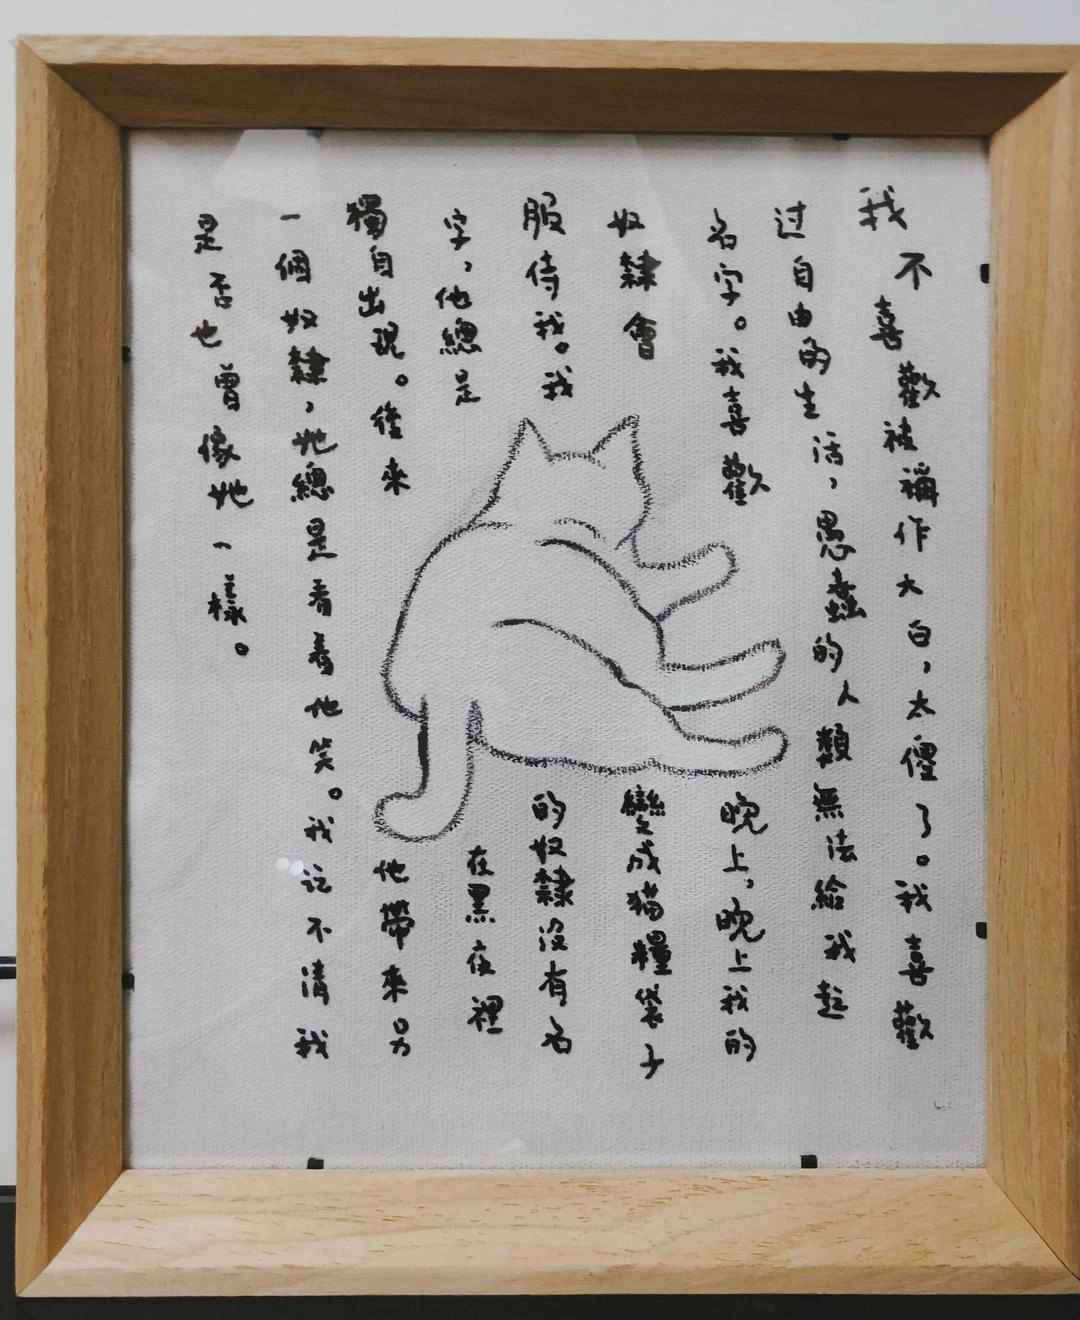 我不喜歡被稱作大白，太傻了。我喜歡
过自由的生活，愚蠢的人類無法給我起
名字。我喜歡晚上，晚上我的
奴隸會變成猫糧袋子
服侍我。我的奴隸沒有名
字，他總是在黑夜裡
獨自出現。後來他帶來另
一個奴隸，她總是看着他笑。我记不清我
是否也曾像她一樣。